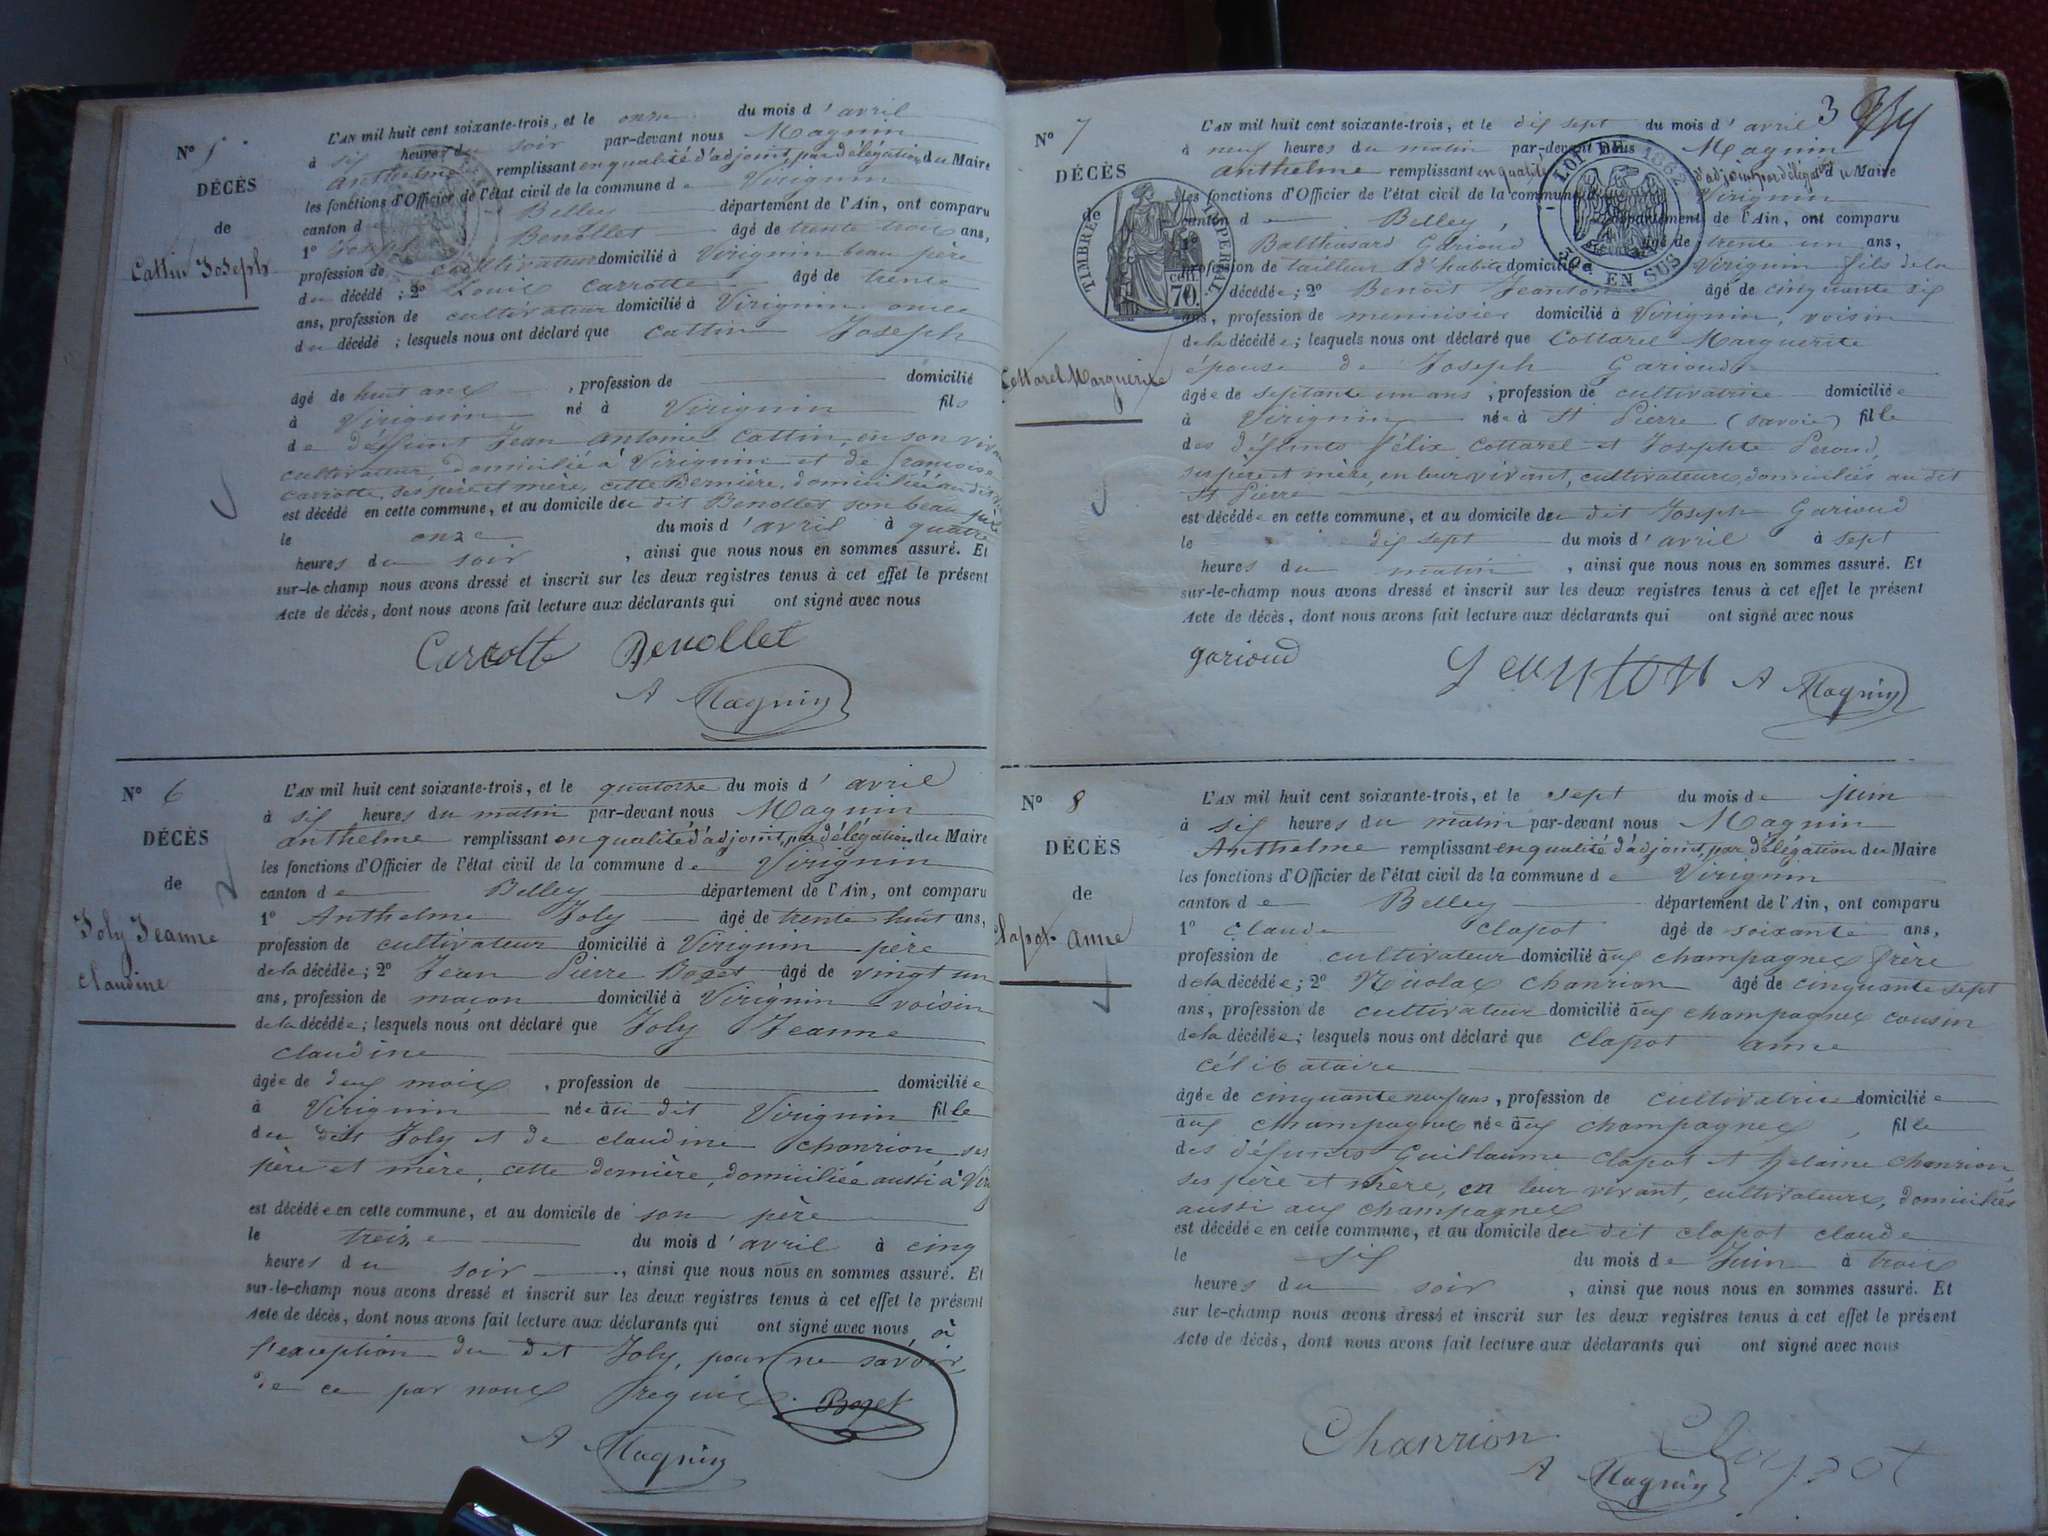 N° 5
DÉCÈS
de
Cattin Joseph
L'AN mil huit cent soixante-trois, et le onze du mois d'avril
à six heures du soir par-devant nous Magnin
anthelme remplissant en qualité d'adjoint, par délégation du Maire
les fonctions d'Officier de l'état civil de la commune de Virignin
canton de Belley département de l'Ain, ont comparu
1° Joseph Benollet âgé de trente trois ans,
profession de cultivateur domicilié à Virignin beau père
du décédé ; 2° Louis Carrotte âgé de trente
ans, profession de cultivateur domicilié à Virignin oncle
du décédé ; lesquels nous ont déclaré que Cattin Joseph
âgé de huit ans , profession de domicilié
à Virignin né à Virignin fils
de deffunt Jean antoine Cattin, en son viva
cultivateur, domicilié à Virignin et de françoise
Carrotte, ses père et mère, cette dernière, domiciliée au dit
est décédé en cette commune, et au domicile du dit Benollet son beau père
le onze du mois d'avril à quatre
heures du soir , ainsi que nous nous en sommes assuré. Et
sur-le-champ nous avons dressé et inscrit sur les deux registres tenus à cet effet le présent
Acte de décès, dont nous avons fait lecture aux déclarants qui ont signé avec nous
Carrotte Benollet
A Magnin
N° 6
DÉCÈS
de
Joly Jeanne
claudine
L'AN mil huit cent soixante-trois, et le quatorze du mois d'avril
à six heures du matin par-devant nous Magnin
anthelme remplissant en qualité d'adjoint, par délégation du Maire
les fonctions d'Officier de l'état civil de la commune de Virignin
canton de Belley département de l'Ain, ont comparu
1° Anthelme Joly âgé de trente huit ans,
profession de cultivateur domicilié à Virignin père
de la décédée ; 2° Jean Pierre Bozet âgé de vingt un
ans, profession de maçon domicilié à Virignin voisin
de la décédée ; lesquels nous ont déclaré que Joly Jeanne
claudine
âgée de deux mois , profession de domiciliée
à Virignin née au dit Virignin fille
du dit Joly et de claudine chanrion, ses
père et mère, cette dernière, domiciliée aussi à Virig
est décédée en cette commune, et au domicile de son père
le treize du mois d'avril à cinq
heures du soir , ainsi que nous nous en sommes assuré. Et
sur-le-champ nous avons dressé et inscrit sur les deux registres tenus à cet effet le présent
Acte de décès, dont nous avons fait lecture aux déclarants qui ont signé avec nous, à
l'exception du dit Joly, pour ne savoir,
de ce par nous requis. Bozet
A Magnin
3
N° 7
DÉCÈS
de
Cottarel Marguerite
TIMBRE IMPERIAL
70
LOI DE 1862
50 EN SUS
L'AN mil huit cent soixante-trois, et le dix sept du mois d'avril
à neuf heures du matin par-devant nous Magnin
anthelme remplissant en qualité d'adjoint par délégation du Maire
les fonctions d'Officier de l'état civil de la commune de Virignin
canton de Belley département de l'Ain, ont comparu
1° Balthasard Garioud âgé de trente un ans,
profession de tailleur d'habits domicilié à Virignin fils de la
décédée ; 2° Benoit Jeanton âgé de cinquante six
ans, profession de menuisier domicilié à Virignin, voisin
de la décédée ; lesquels nous ont déclaré que Cottarel Marguerite
épouse de Joseph Garioud
âgée de septante un ans , profession de cultivatrice domiciliée
à Virignin née à St Pierre (savoie) fille
des défunts félix Cottarel et Josephte Peroud,
ses père et mère, en leur vivant, cultivateurs, domiciliés au dit
St Pierre
est décédée en cette commune, et au domicile du dit Joseph Garioud
le dix sept du mois d'avril à sept
heures du matin , ainsi que nous nous en sommes assuré. Et
sur-le-champ nous avons dressé et inscrit sur les deux registres tenus à cet effet le présent
Acte de décès, dont nous avons fait lecture aux déclarants qui ont signé avec nous
garioud Jeanton A Magnin
N° 8
DÉCÈS
de
Clapot anne
L'AN mil huit cent soixante-trois, et le sept du mois de juin
à six heures du matin par-devant nous Magnin
Anthelme remplissant en qualité d'adjoint, par délégation du Maire
les fonctions d'Officier de l'état civil de la commune de Virignin
canton de Belley département de l'Ain, ont comparu
1° Claude Clapot âgé de soixante ans,
profession de cultivateur domicilié aux champagnes frère
de la décédée ; 2° Nicolas Chanrion âgé de cinquante sept
ans, profession de cultivateur domicilié aux champagnes cousin
de la décédée ; lesquels nous ont déclaré que Clapot anne
célibataire
âgée de cinquante neuf ans , profession de cultivatrice domiciliée
aux champagnes née aux champagnes , fille
des défunts Guillaume Clapot et helaine Chanrion,
ses père et mère, en leur vivant, cultivateurs, domiciliés
aussi aux champagnes
est décédée en cette commune, et au domicile du dit Clapot Claude
le six du mois de Juin à trois
heures du soir , ainsi que nous nous en sommes assuré. Et
sur le-champ nous avons dressé et inscrit sur les deux registres tenus à cet effet le présent
Acte de décès, dont nous avons fait lecture aux déclarants qui ont signé avec nous
Chanrion Clapot
A Magnin